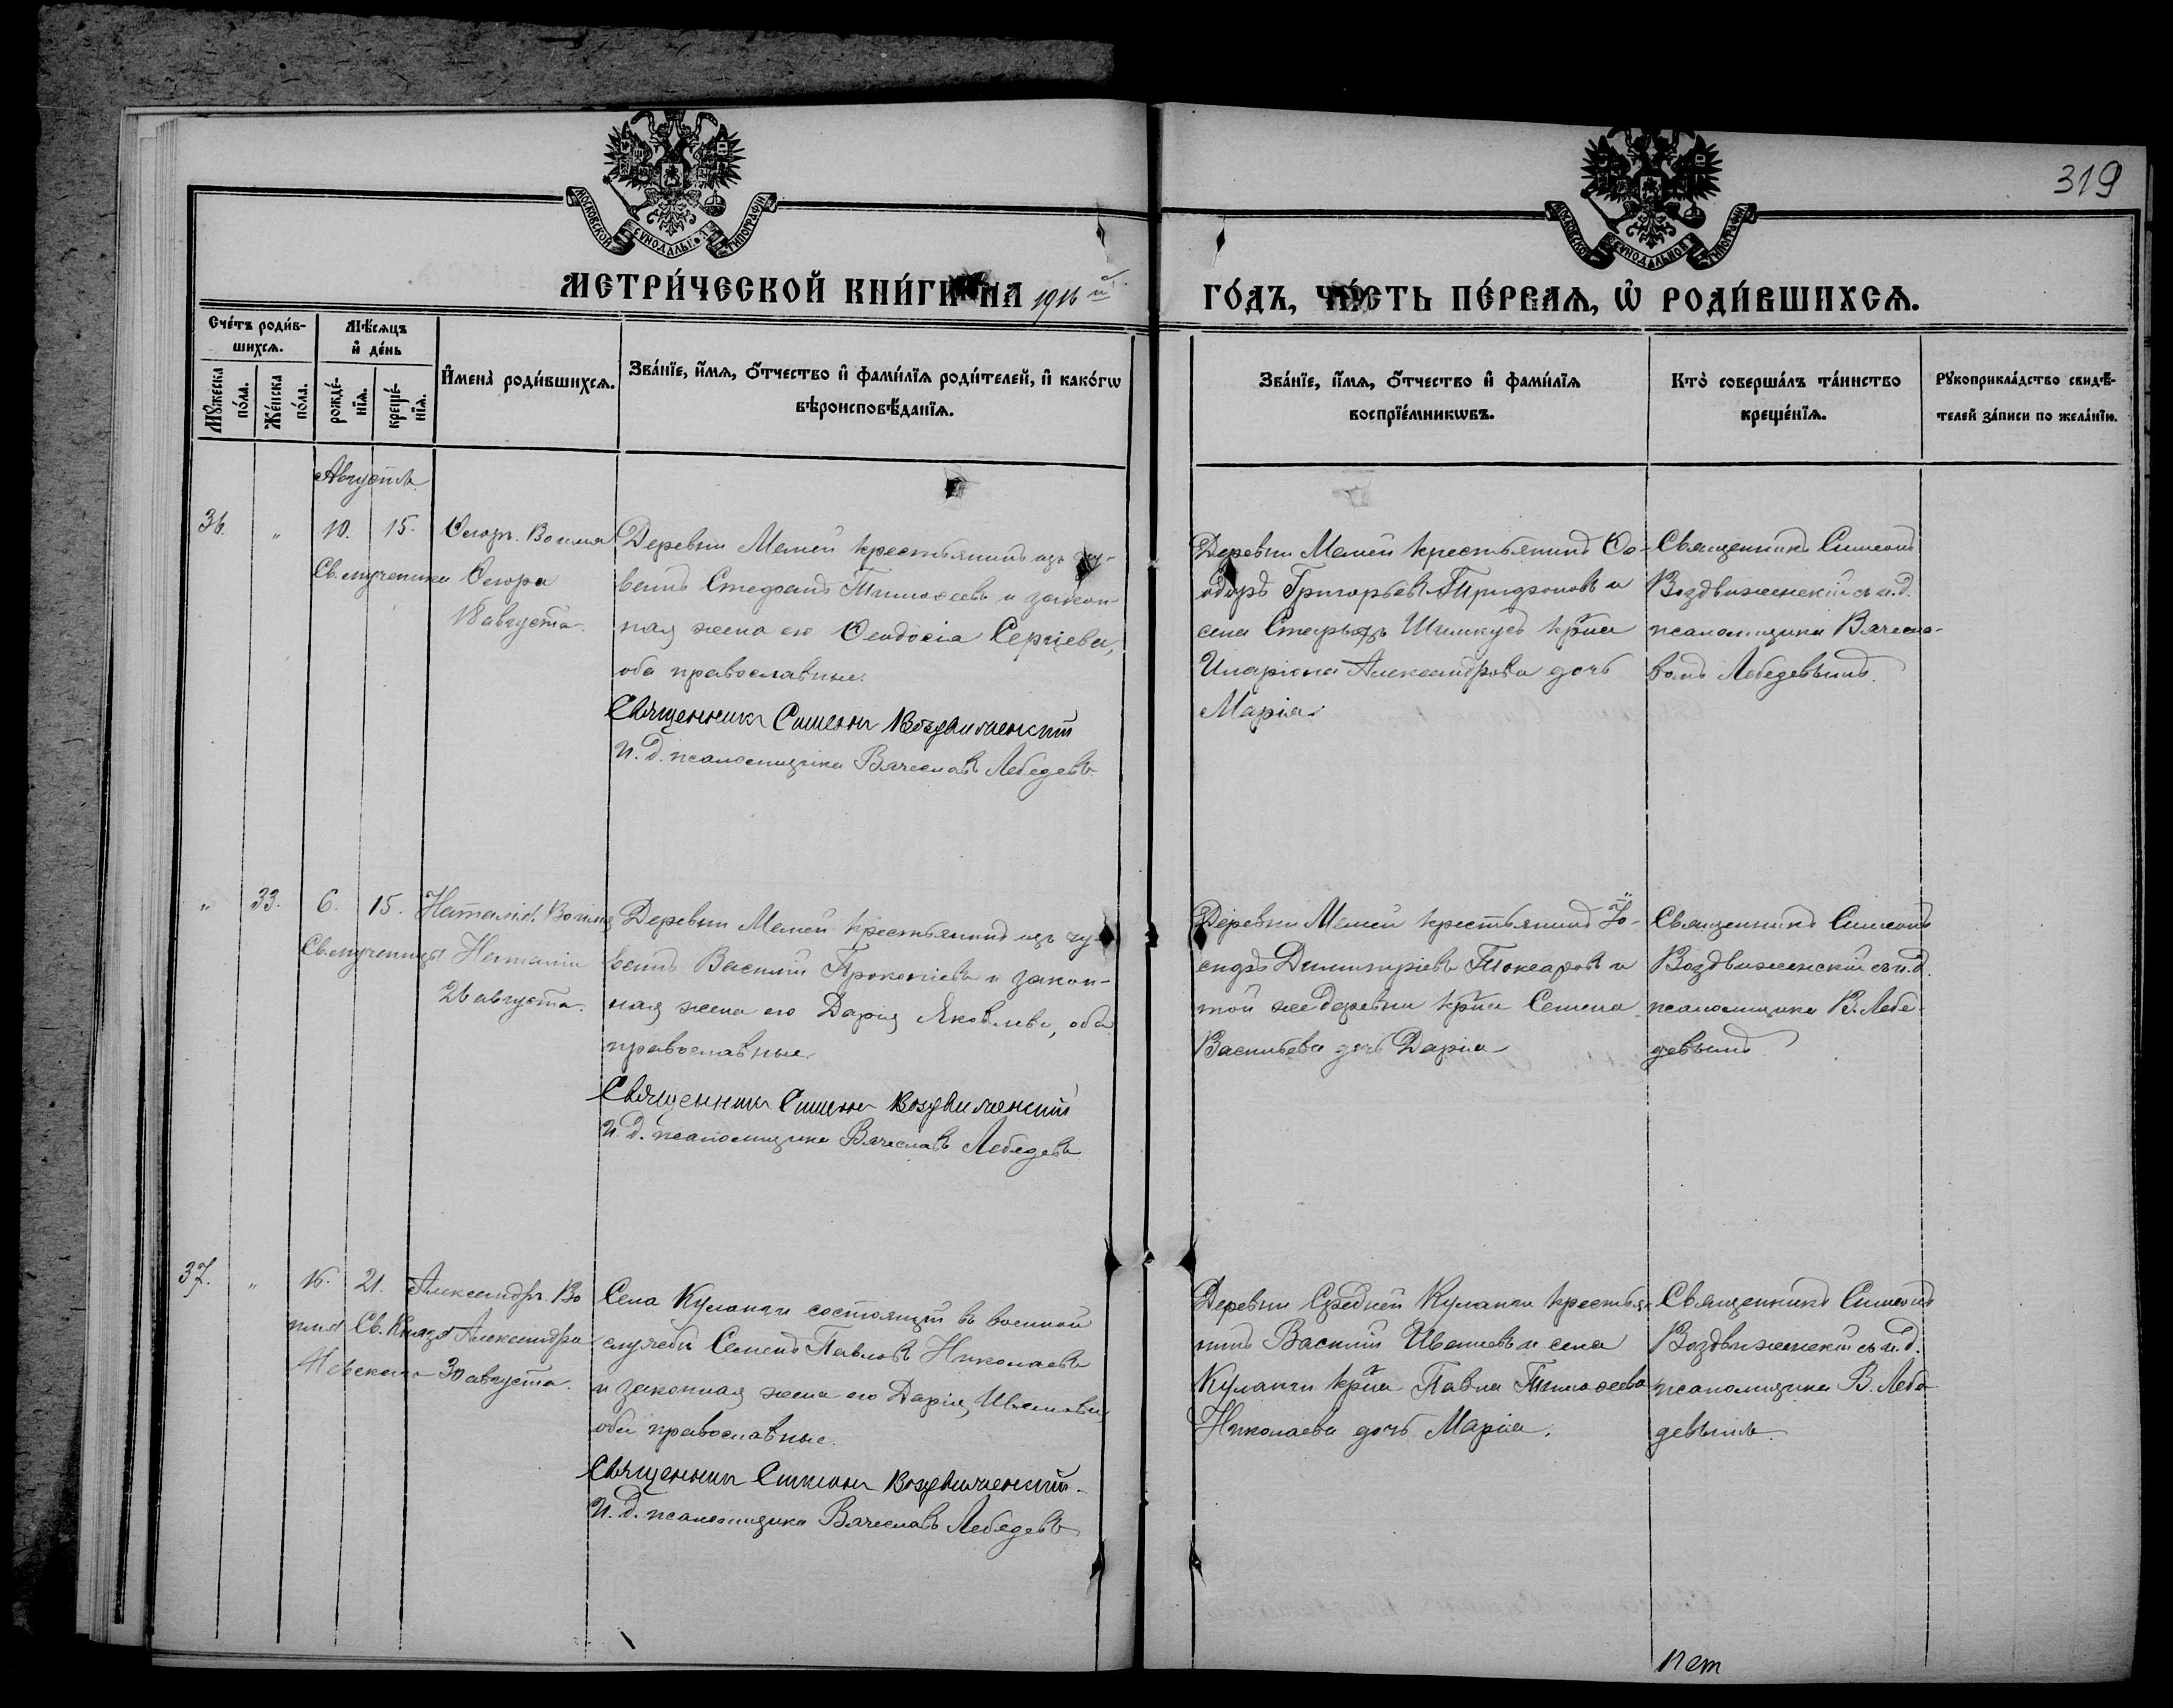 319
МОСКОВСКОЙ СУНОДАЛЬНОЙ ТИПОГРАФІИ
МОСКОВСКОЙ СУНОДАЛЬНОЙ ТИПОГРАФІИ
МЕТРИ́ЧЕСКОЙ КНИ́ГИ НА 1916 й
ГО́ДЪ, ЧА́СТЬ ПЕ́РВАѦ, Ѡ҆ РОДИ́ВШИХСѦ.
Сче́тъ роди́в-
шихсѧ.
Мꙋ́жеска
по́ла.
Же́нска
по́ла.
Мѣ́сѧцъ
и҆ де́нь
рожде́-
нїѧ.
креще́-
нїѧ.
И҆мена̀ роди́вшихсѧ.
Зва́нїе, и҆́мѧ, о҆́тчество и҆ фами́лїѧ роди́телей, и҆ како́гѡ
вѣроисповѣ́данїѧ.
Зва́нїе, и҆́мѧ, о҆́тчество и҆ фами́лїѧ
воспрїе́мникѡвъ.
Кто̀ соверша́лъ та́инство
креще́нїѧ.
Рꙋкоприкла́дство свидѣ́-
телей за́писи по жела́нїю.
Августъ
36 " 10. 15. Ѳлоръ. Во имя
Св. мученика Ѳлора
18 августа.
Деревни Мамей крестьянинъ изъ чу-
вашъ Стефанъ Тимоѳеевъ и закон-
ная жена его Ѳеодосія Сергіева,
оба православные.
Священникъ Симеонъ Воздвиженскій
И. д. псаломщика Вячеславъ Лебедевъ
Деревни Мамей крестьянинъ Ѳе-
одоръ Григорьевъ Тридзоновъ и
села Старыхъ Шимкусъ кр-на
Иларіона Александрова дочь
Марія.
Священникъ Симеонъ
Воздвиженскій съ и.д.
псаломщика Вячесла-
вомъ Лебедевымъ.
" 33. 6. 15. Наталія. Во имя
Св. мученицы Наталіи
26 августа.
Деревни Мамей крестьянинъ изъ чу-
вашъ Василій Прокопіевъ и закон-
ная жена его Дарія Яковлева, оба
православные.
Священникъ Симеонъ Воздвиженскій
И. д. псаломщика Вячеславъ Лебедевъ
Деревни Мамей крестьянинъ Іо-
сифъ Димитріевъ Токсаровъ и
той же деревни кр-на Семена
Васильева дочь Дарія
Священникъ Симеонъ
Воздвиженскій съ и.д.
псаломщика В. Лебе-
девымъ
37. " 16. 21. Александръ. Во
имя Св. Князя Александра
Невскаго 30 августа.
Села Куланги состоящій въ военной
службѣ Семенъ Павловъ Николаевъ
и законная жена его Дарія Иванова
оба православные.
Священникъ Симеонъ Воздвиженскій.
И. д. псаломщика Вячеславъ Лебедевъ
Деревни Средней Куланги крестья-
нинъ Василій Ивановъ и села
Куланги кр-на Павла Тимоѳеева
Николаева дочь Марія.
Священникъ Симеонъ
Воздвиженскій съ и.д.
псаломщика В. Лебе-
девымъ.